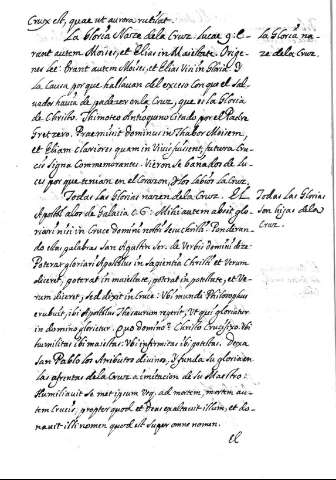 Crux est, quae ut aurora rutilat.
La Gloria Naze de la Cruz. Lucae 9: E-
rant autem Moises, et Elias in Maiestate. Orige-
nes lee: Erant autem Moises, et Elias Visi in Gloria. Y
la Causa porque hallauan del exceso con que el Sal-
uador hauia de padezer en la Cruz, que es la Gloria
de Christo. Thimoteo Antioqueno Citado por el Padre
Gretzero. Praemiuit Dominus in Thabor Moisem,
et Eliam clariores quam in Viuis fuissent, futura Cru-
cis signa Commemorantes. Vieronse bañados de lu-
ces porque tenian en el Corazon, y los labios la Cruz.
Todas las Glorias nazen de la Cruz. El
Apostol a los de Galacia c. 6: Mihi autem absit glo-
riari nisi in Cruce Domini nostri Jesu christi. Ponderan-
do estas palabras San Agustin Ser. de Verbis domini dize
Poterat gloriari Apostolus in sapientia Christi et Verum
diceret, poterat in maiestate, poterat in potestate, et Ve-
rum diceret, sed dixit in Cruce: Vbi mundi Philosophus
erubuit, ibi Apostolus Thesaurum reperit, Ut qui gloriatur
in domino glorietur. Quo Domino? Christo Crucifixo. Vbi
humilitas ibi maiestas: Vbi infirmitas ibi potestas. Dexa
San Pablo los Atributos diuinos, y funda su gloria en
las afrentas de la Cruz a imitacion de su Maestro:
Humiliauit semet ipsum Vsq. ad mortem, mortem au-
tem Crucis, propter quod et Deus exaltauit illum, et do-
nauit illi nomen quod est super omne nomen.
el
la Gloria na-
ze de la Cruz
Todas las Glorias
son hijas de la
Cruz